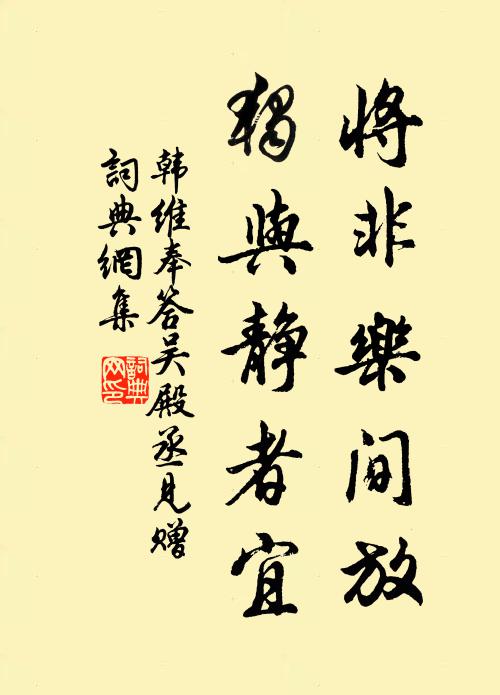 將非樂间放
獨與静者宜
韩維奉答吴殿丞見赠
詞典網集
詞典网印